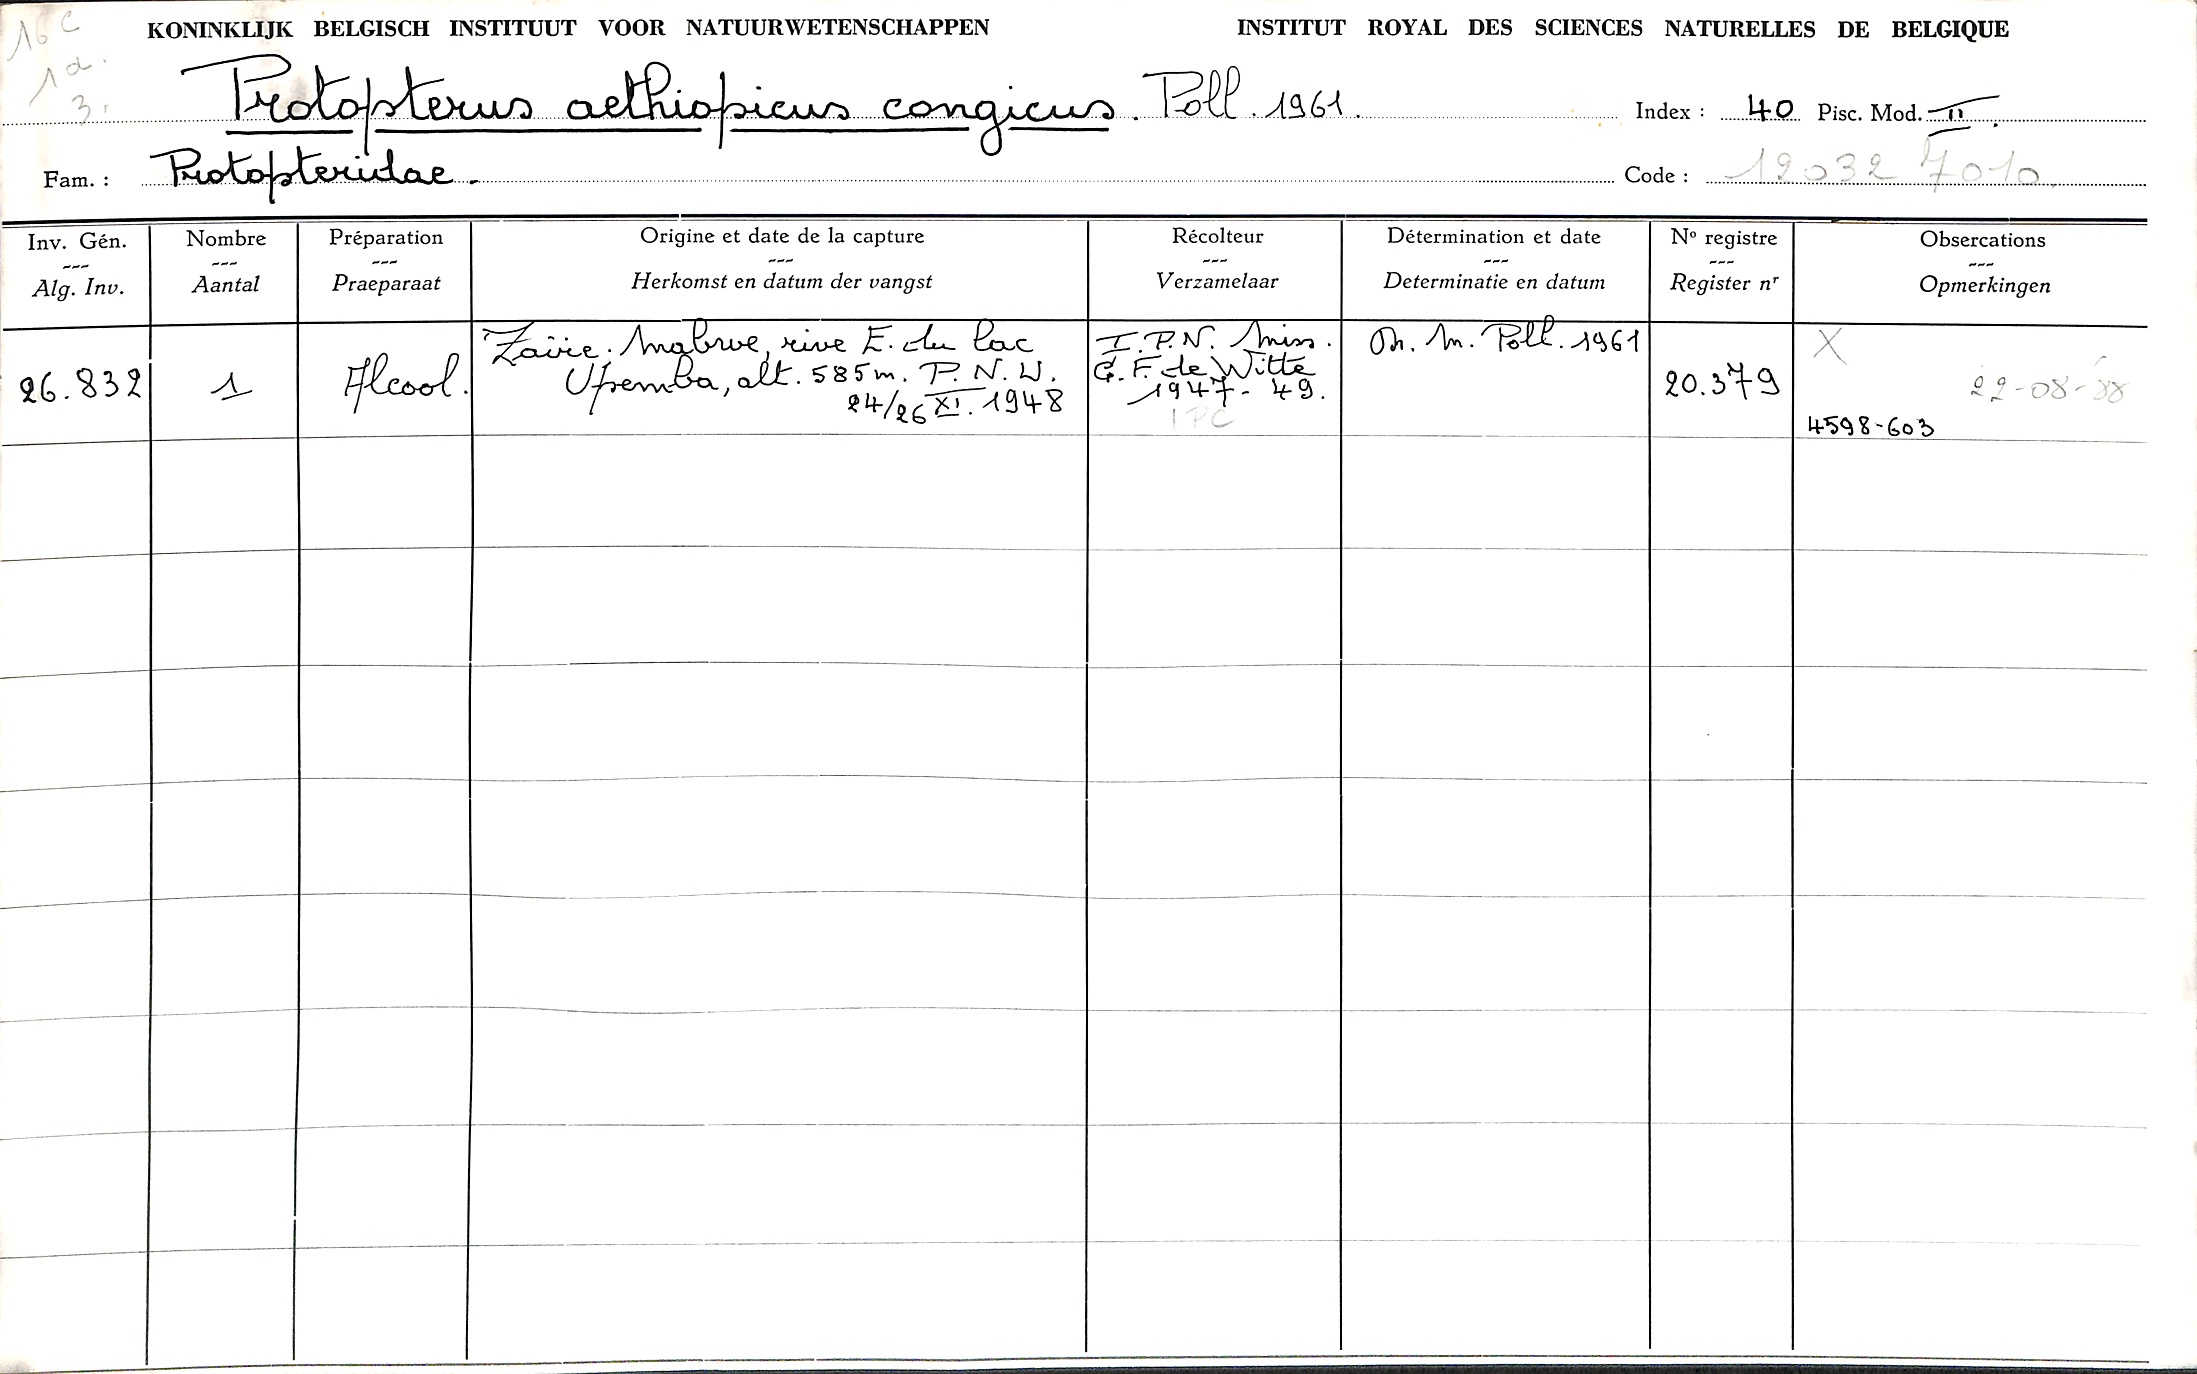 16c
1d.
3.
KONINKLIJK BELGISCH INSTITUUT VOOR NATUURWETENSCHAPPEN
INSTITUT ROYAL DES SCIENCES NATURELLES DE BELGIQUE
Protopterus aethiopicus congicus. Poll. 1961.
Index : 40 Pisc. Mod. II.
Fam. : Protopteridae.
Code : 12032 7010.
Inv. Gén.
---
Alg. Inv.
Nombre
---
Aantal
Préparation
---
Praeparaat
Origine et date de la capture
---
Herkomst en datum der vangst
Récolteur
---
Verzamelaar
Détermination et date
---
Determinatie en datum
Nº registre
---
Register nr
Obsercations
---
Opmerkingen
26.832
1
Alcool.
Zaïre. Mabwe, rive E. du lac
Upemba, alt. 585m. P.N.U.
24/26 XI. 1948
I.P.N. Miss.
G.F. de Witte
1947-49.
IPC
M. Poll. 1961
20.379
X
22-08-88
4598-603